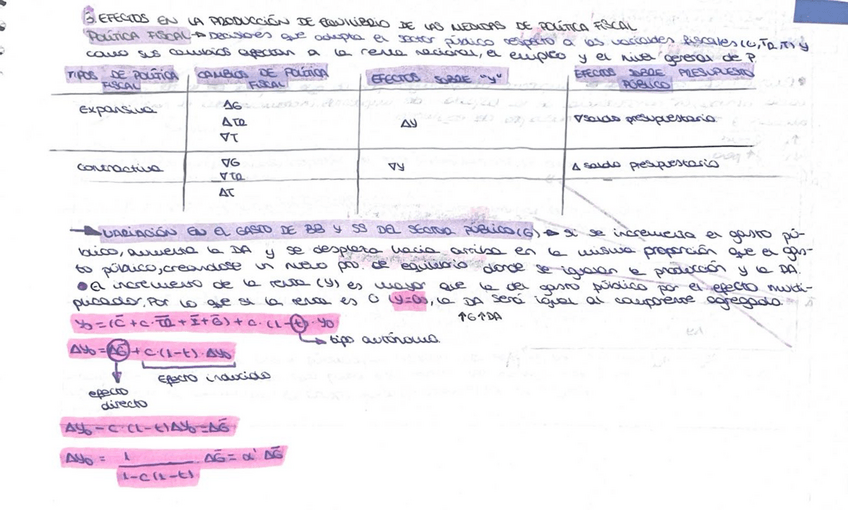 2. EFECTOS EN LA PRODUCCIÓN DE EQUILIBRIO DE LAS MEDIDAS DE POLÍTICA FISCAL
POLÍTICA FISCAL → Decisiones que adopta el sector público respecto a las variables fiscales (G, TR, T) y
como sus cambios afectan a la renta nacional, el empleo y el nivel general de P.
TIPOS DE POLÍTICA FISCAL
CAMBIOS DE POLÍTICA FISCAL
EFECTOS SOBRE "Y"
EFECTOS SOBRE PRESUPUESTO PÚBLICO
Expansiva
ΔG
ΔTR
∇T
ΔY
∇ saldo presupuestario
Contractiva
∇G
∇TR
ΔT
∇Y
Δ saldo presupuestario
→ VARIACIÓN EN EL GASTO DE BB Y SS DEL SECTOR PÚBLICO (G) → Si se incrementa el gasto pú-
blico, aumenta la DA y se desplaza hacia arriba en la misma proporción que el gas-
to público, creandose un nuevo pto. de equilibrio donde se igualan la producción y la DA.
• El incremento de la renta (Y) es mayor que la del gasto público por el efecto multi-
plicador, Por lo que si la renta es 0 (Y=0), la DA será igual al componente agregado.
↑G↑DA
Y₀ = (C̄ + c·T̄R̄ + Ī + Ḡ) + c·(1-t)·Y₀
→ tipo autónomo
ΔY₀ = ΔḠ + c·(1-t)·ΔY₀
efecto directo
Efecto inducido
ΔY₀ - c·(1-t)ΔY₀ = ΔḠ
ΔY₀ = 1 / 1-c(1-t) ΔḠ = α' ΔḠ